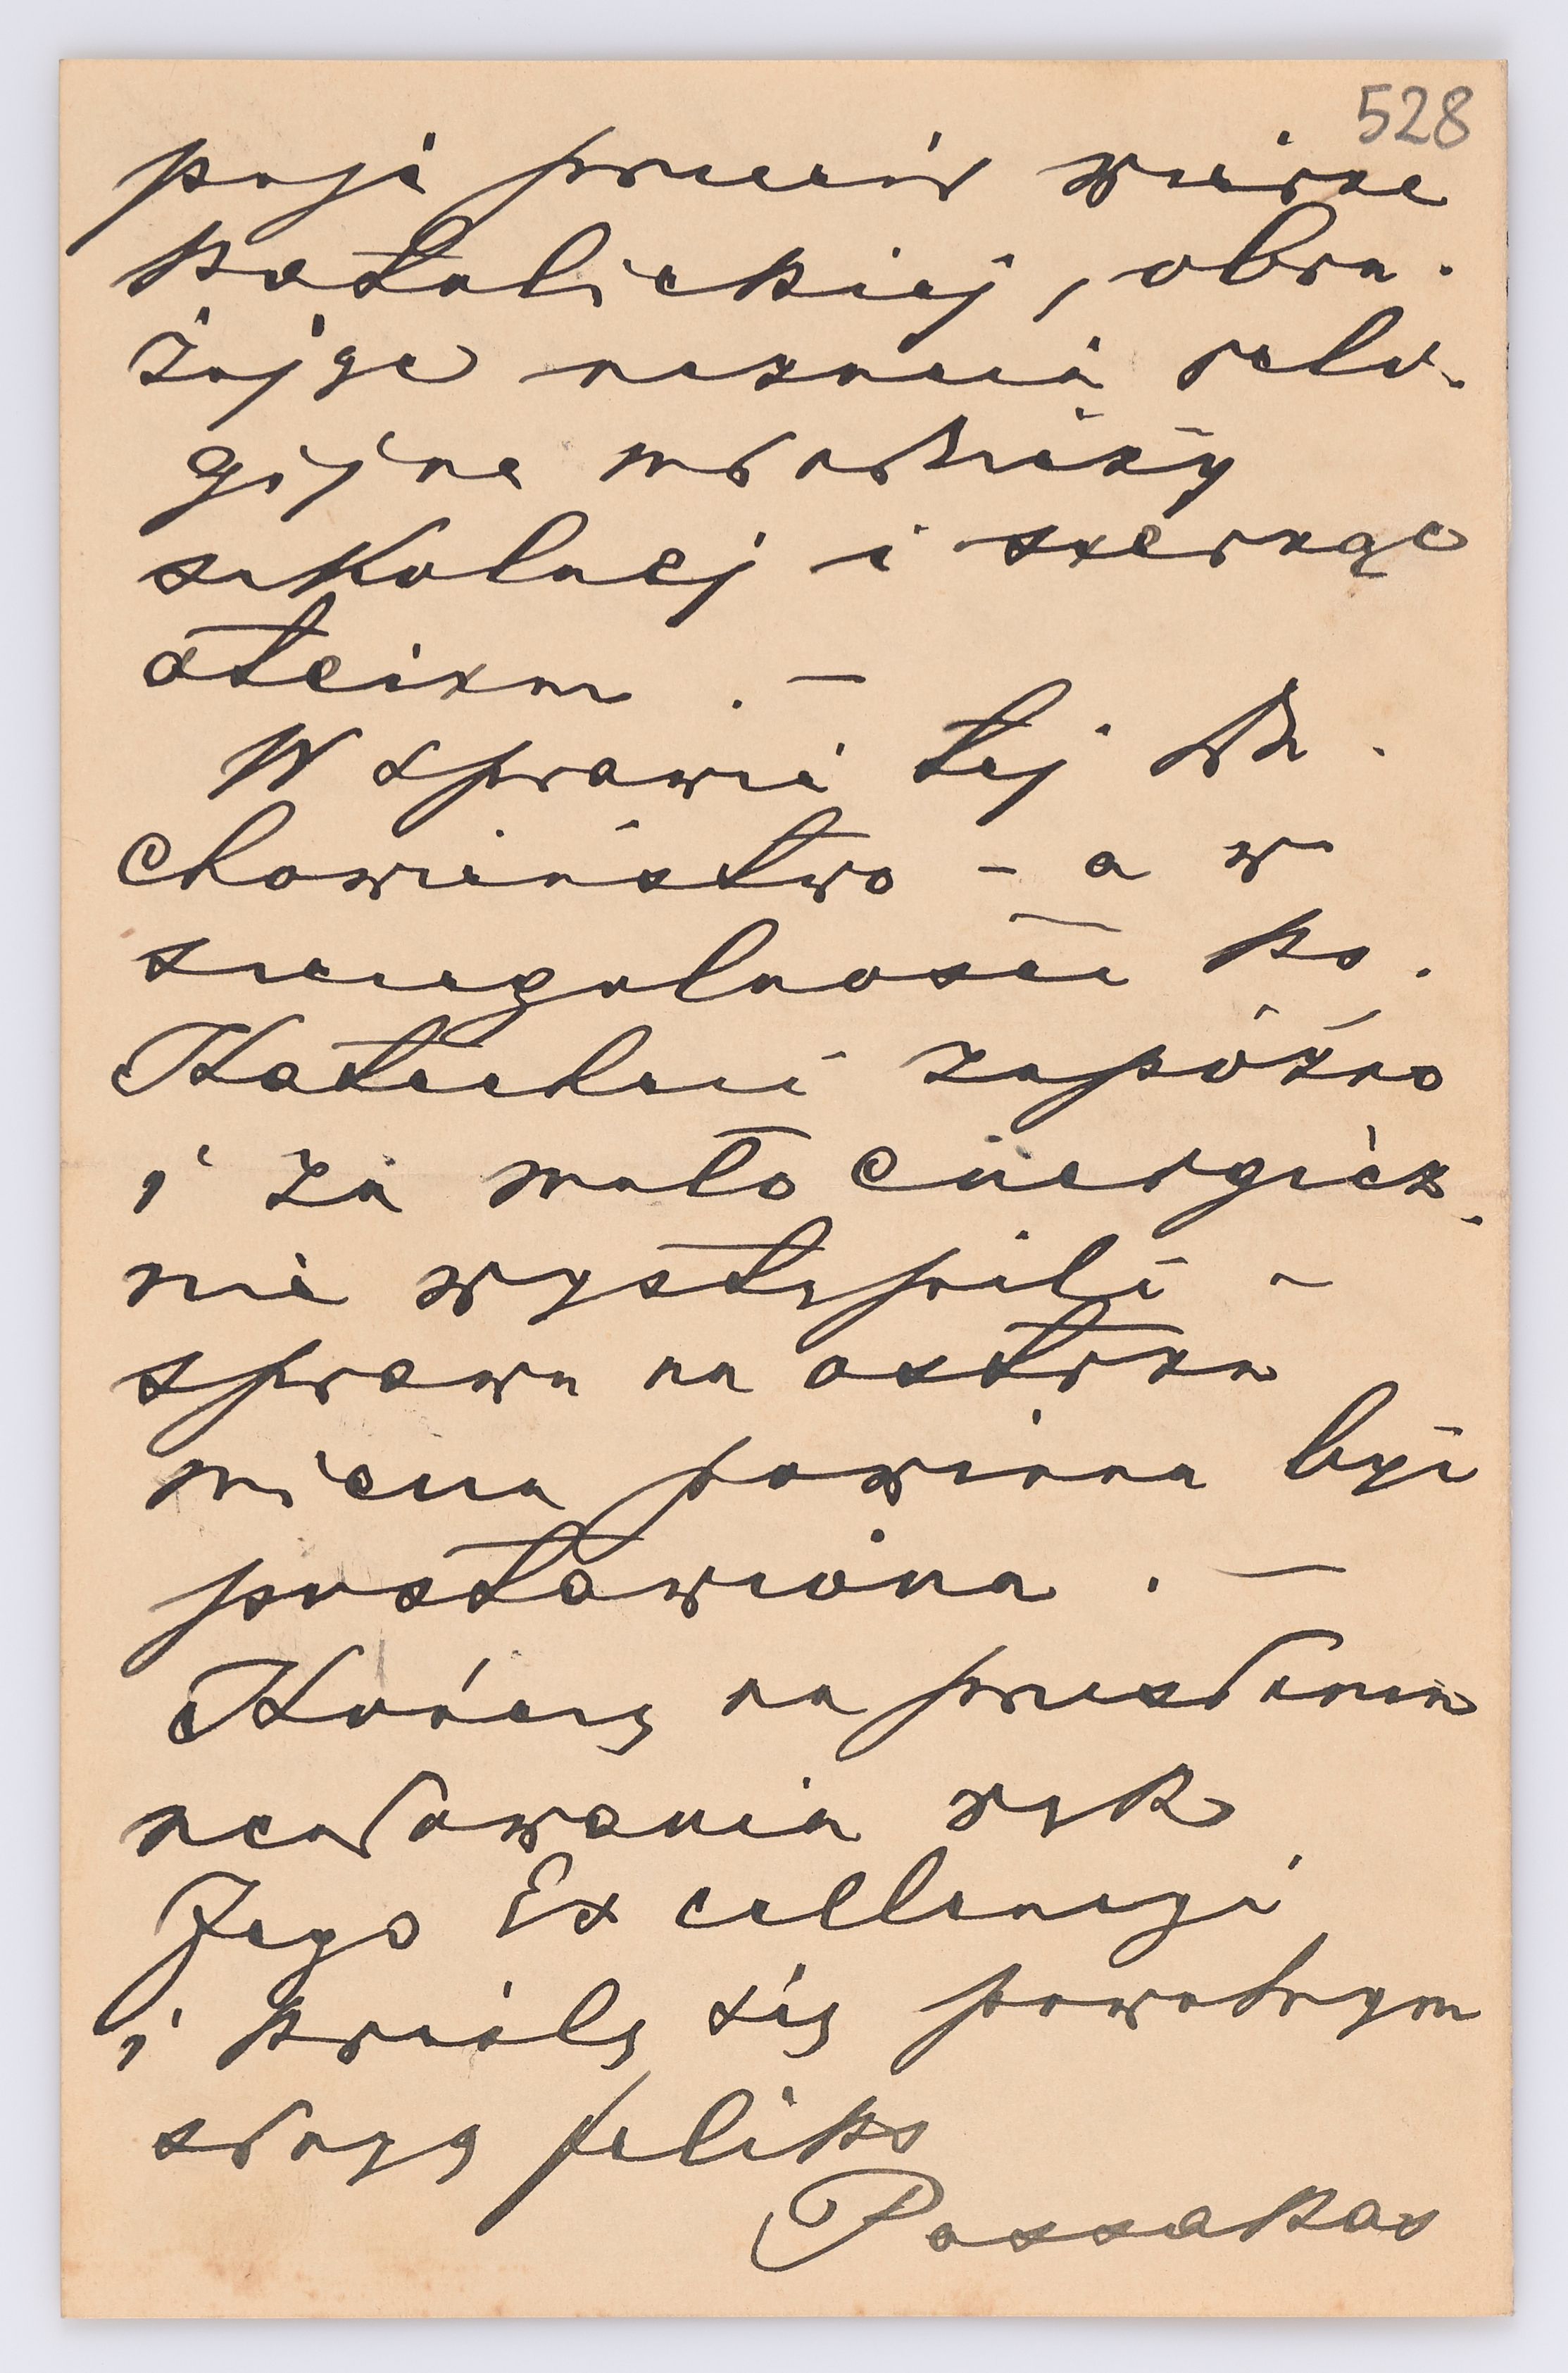 528
pują przeciw wierze
katolickiej, obra-
żając uczucia reli-
gijne młodzieży
szkolnej i szerząc
ateizm . —
W sprawie tej Du-
chowieństwo - a w
szczególności ks.
Katecheci zapóźno
i za mało energicz-
nie wystąpili -
sprawa na ostrzu
miecza powinna być
postawiona . —
Kończę na przesłaniu
ucałowania rąk
Jego Excellencyi
i kreślę się powolnym
sługą Feliks